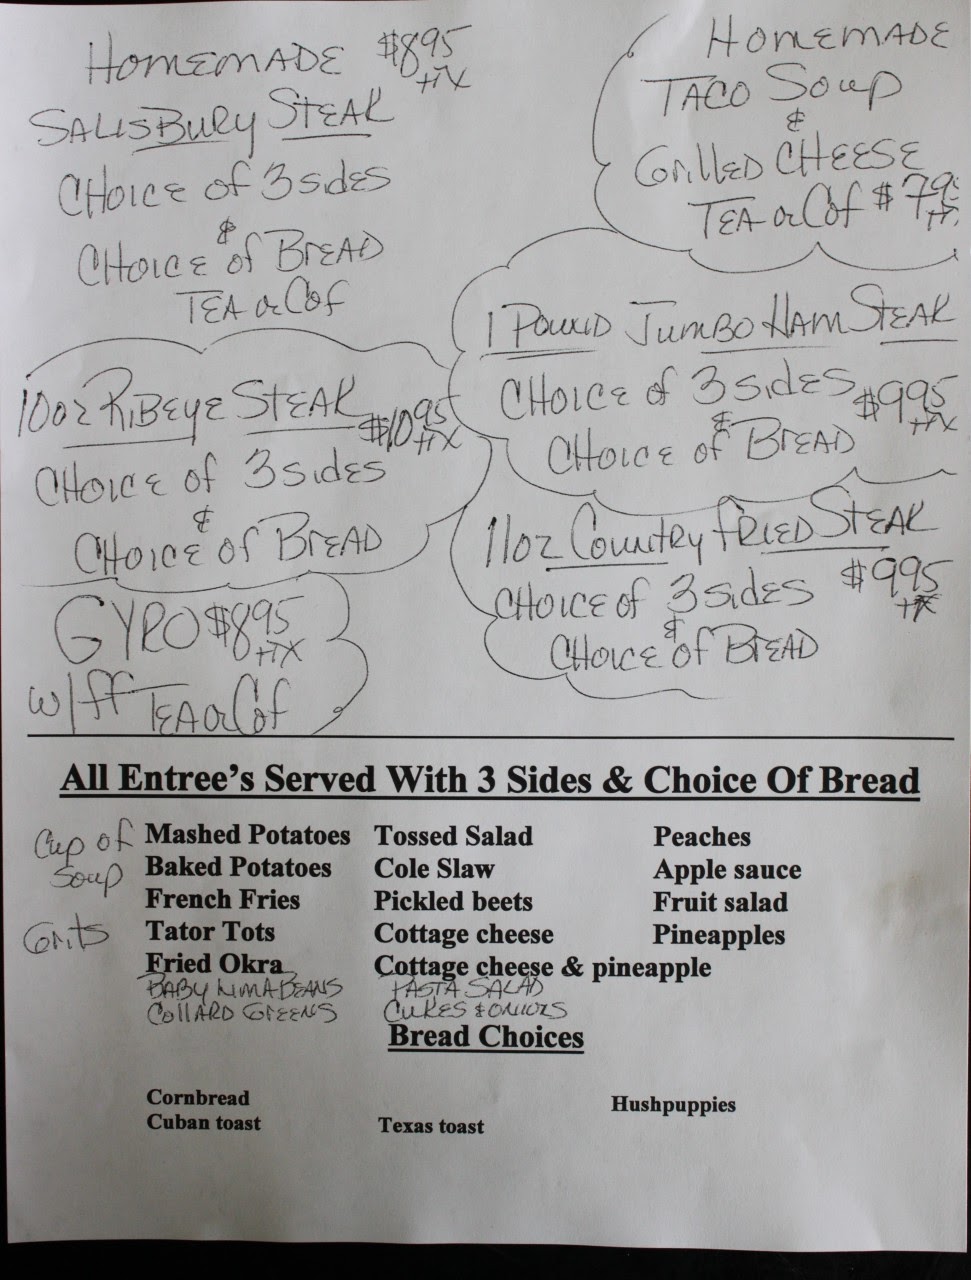 HOMEMADE $8.95
+TX
SALISBURY STEAK
CHOICE of 3 sides
&
CHOICE of BREAD
TEA or Cof
HOMEMADE
TACO Soup
&
GRILLED CHEESE
TEA or Cof $795
+TX
1 POUND JUMBO HAM STEAK
CHOICE of 3 sides $995
+TX
&
CHOICE of BREAD
10oz RIBEYE STEAK $1095
+TX
CHOICE of 3 sides
&
CHOICE of BREAD
11oz Country FRIED STEAK
$995
+TX
CHOICE of 3 sides
&
CHOICE of BREAD
GYRO $895
+TX
w/ff TEA or Cof
All Entree's Served With 3 Sides & Choice Of Bread
Cup of Soup
Grits
Mashed Potatoes Tossed Salad Peaches
Baked Potatoes Cole Slaw Apple sauce
French Fries Pickled beets Fruit salad
Tator Tots Cottage cheese Pineapples
Fried Okra Cottage cheese & pineapple
BABY LIMA BEANS PASTA SALAD
COLLARD GREENS CUKES & ONIONS
Bread Choices
Cornbread Hushpuppies
Cuban toast Texas toast